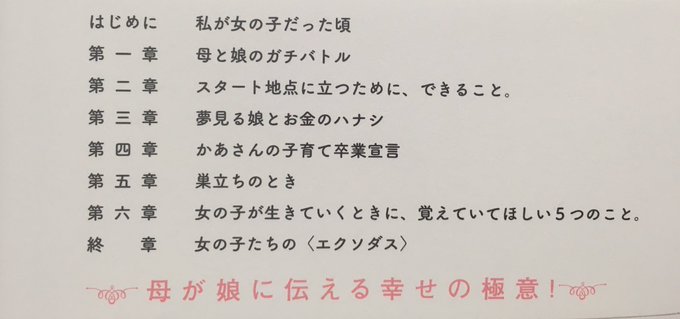 はじめに 私が女の子だった頃
第一章 母と娘のガチバトル
第二章 スタート地点に立つために、できること。
第三章 夢見る娘とお金のハナシ
第四章 かあさんの子育て卒業宣言
第五章 巣立ちのとき
第六章 女の子が生きていくときに、覚えていてほしい5つのこと。
終章 女の子たちの〈エクソダス〉
母が娘に伝える幸せの極意!